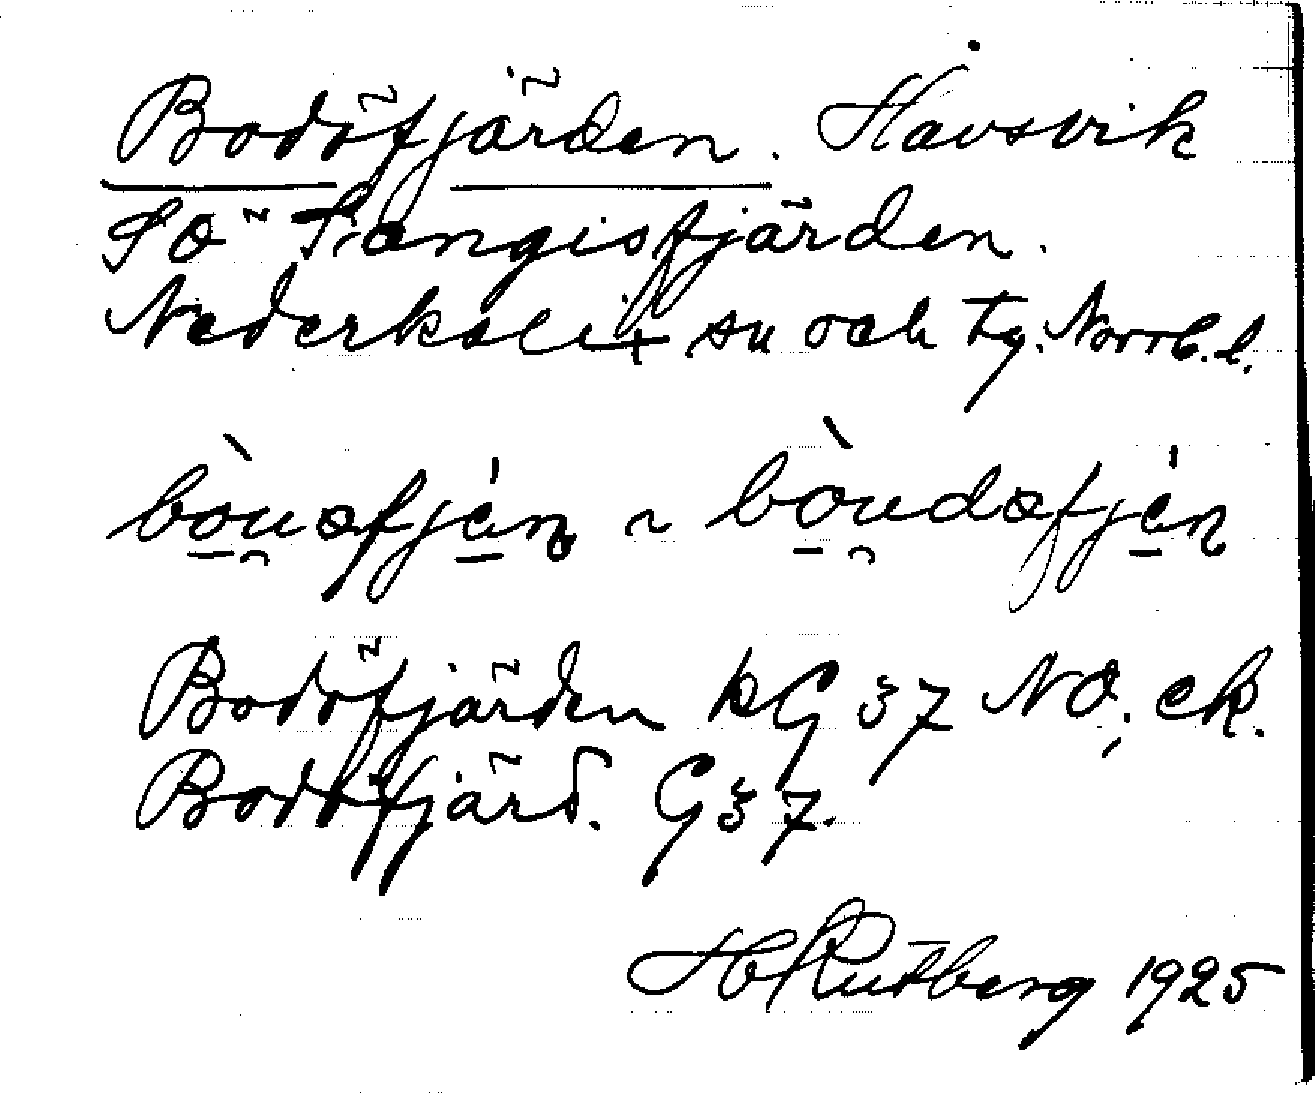 Bodöfjärden. Havsvik
SO Sangisfjärden.
Nederkalix sn och tg. Norrb. l.
bòu̯əfjén ~ bòu̯dəfjén
Bodöfjärden kG 37 NO, ek.
Bodöfjärd. G 37.
H Rutberg 1925